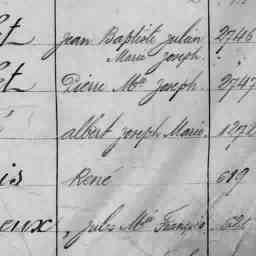 et Jean Baptiste Julien 2746
Marie Joseph.
et Pierre Mie Joseph 2747
albert Joseph Marie 1272
is René 619
eux Jules Mie François 621